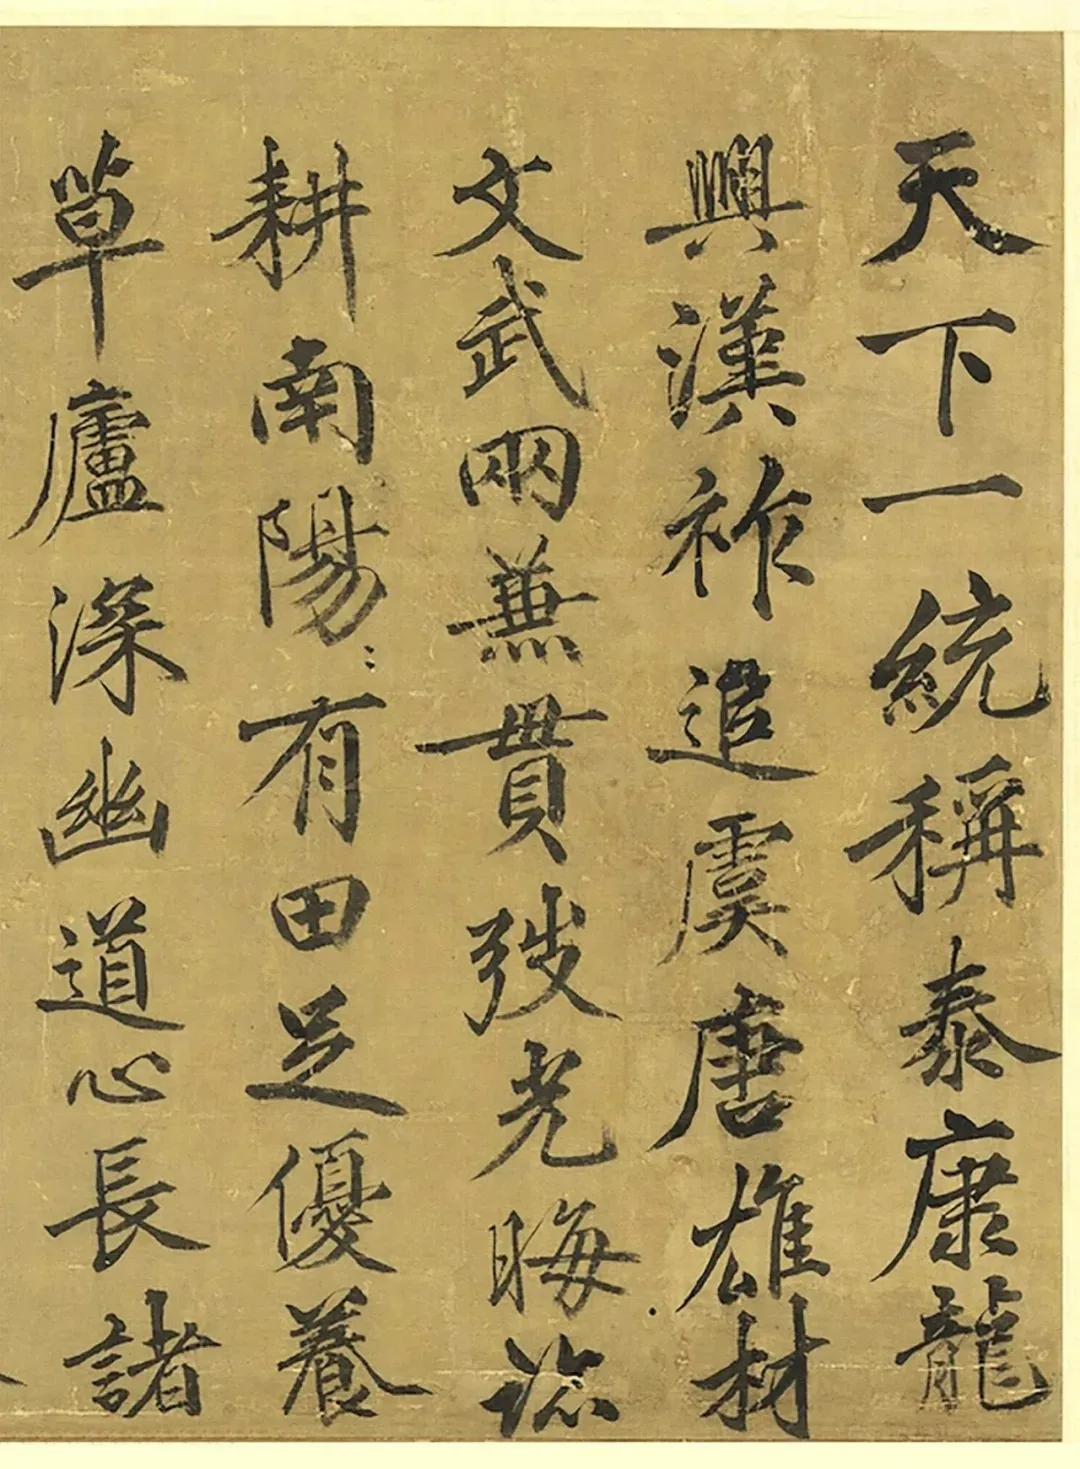 天下一統稱泰康龍
興漢祚追虞唐雄材
文武兩兼貫弢光晦跡
耕南陽〻有田足優養
草廬深幽道心長諸